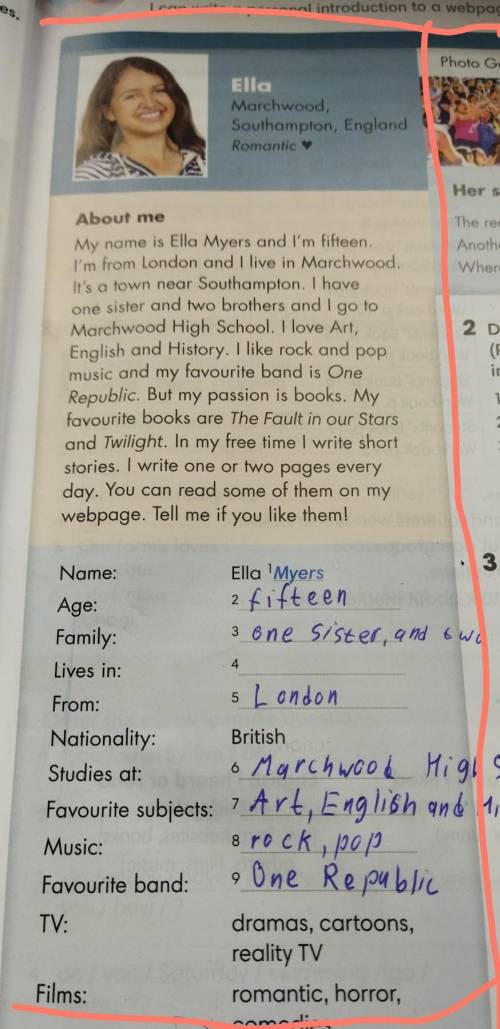 es.
I can write a personal introduction to a webpag
Photo G
Ella
Marchwood,
Southampton, England
Romantic ♥
Her s
The re
Anoth
Where
About me
My name is Ella Myers and I'm fifteen.
I'm from London and I live in Marchwood.
It's a town near Southampton. I have
one sister and two brothers and I go to
Marchwood High School. I love Art,
English and History. I like rock and pop
music and my favourite band is One
Republic. But my passion is books. My
favourite books are The Fault in our Stars
and Twilight. In my free time I write short
stories. I write one or two pages every
day. You can read some of them on my
webpage. Tell me if you like them!
2 D
(
i
3
Name: Ella 1 Myers
Age: 2 fifteen
Family: 3 one sister, and two
Lives in: 4
From: 5 London
Nationality: British
Studies at: 6 Marchwood High S
Favourite subjects: 7 Art, English and Hi
Music: 8 rock, pop
Favourite band: 9 One Republic
TV: dramas, cartoons,
reality TV
Films: romantic, horror,
comedies